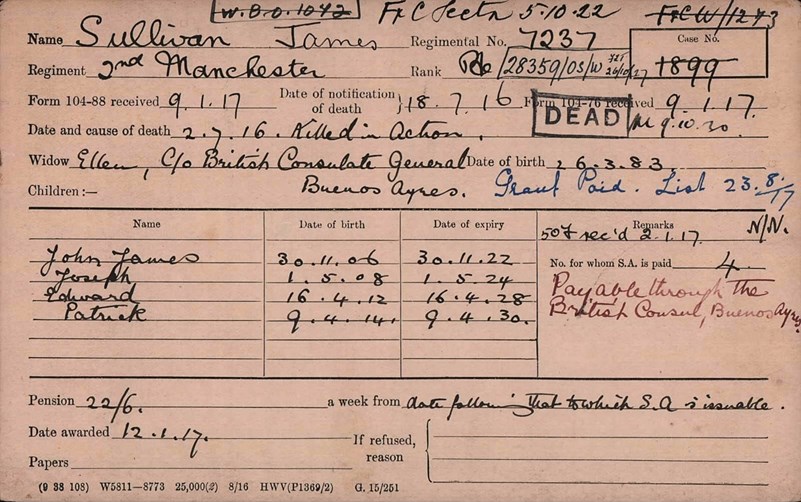 W.B.O. 1042 FxC Sectn 5.10.22 FxCW/1273
Name Sullivan James Regimental No. 7237 Case No.
Regiment 2nd Manchester Rank Pte 28359/OS/W 26/10/27 1899
Form 104-88 received 9.1.17 Date of notification of death } 18.7.16 Form 104-76 received 9.1.17.
DEAD 9.10.30.
Date and cause of death 2.7.16. Killed in Action.
Widow Ellen, C/o British Consulate General Date of birth 26.3.83.
Children:— Buenos Ayres. Grant Paid. List 23.8/17
Name Date of birth Date of expiry Remarks N/N.
50F rec'd 2.1.17.
John James 30.11.06 30.11.22
No. for whom S.A. is paid 4.
Joseph 1.5.08 1.5.24
Edward 16.4.12 16.4.28
Patrick 9.4.14. 9.4.30.
Payable through the
British Consul, Buenos Ayres
Pension 22/6. a week from date following that to which S.A is issuable.
Date awarded 12.1.17. If refused,
reason
Papers
(9 38 108) W5811—8773 25,000(2) 8/16 HWV(P1369/2) G. 15/251